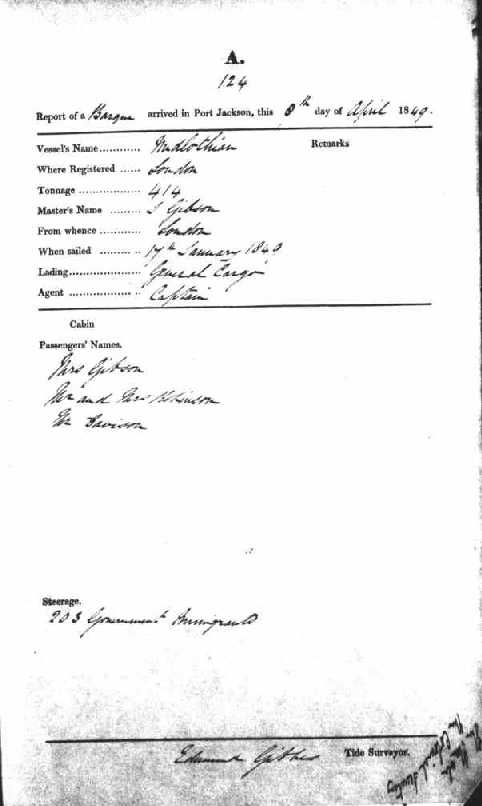 A.
124
Report of a Barque arrived in Port Jackson, this 8th day of April 1849.
Vessel's Name............ Midlothian
Remarks
Where Registered ...... London
Tonnage .................. 414
Master's Name ......... Gibson
From whence ............ London
When sailed ............ 17th January 1849
Lading..................... General Cargo
Agent ..................... Captain
Cabin
Passengers' Names.
Mrs Gibson
Mr and Mrs Robinson
Mr Davison
Steerage.
203 Government Immigrants
Edmund Tide Surveyor.